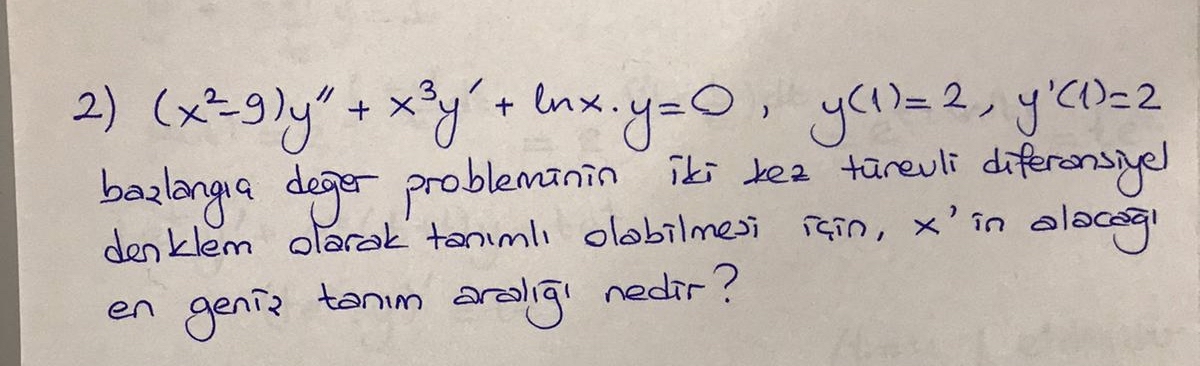 2) (x²-9)y'' + x³y' + lnx.y=0, y(1)=2, y'(1)=2
başlangıç değer probleminin iki kez türevli diferansiyel
denklem olarak tanımlı olabilmesi için, x'in alacağı
en geniş tanım aralığı nedir?